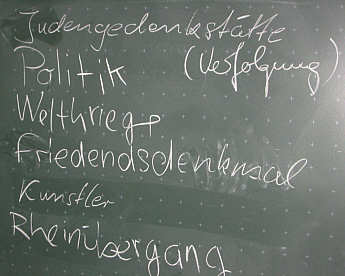 Judengedenkstätte
Politik (Verfolgung)
Weltkriege
Friedendsdenkmal
Künstler
Rheinübergang